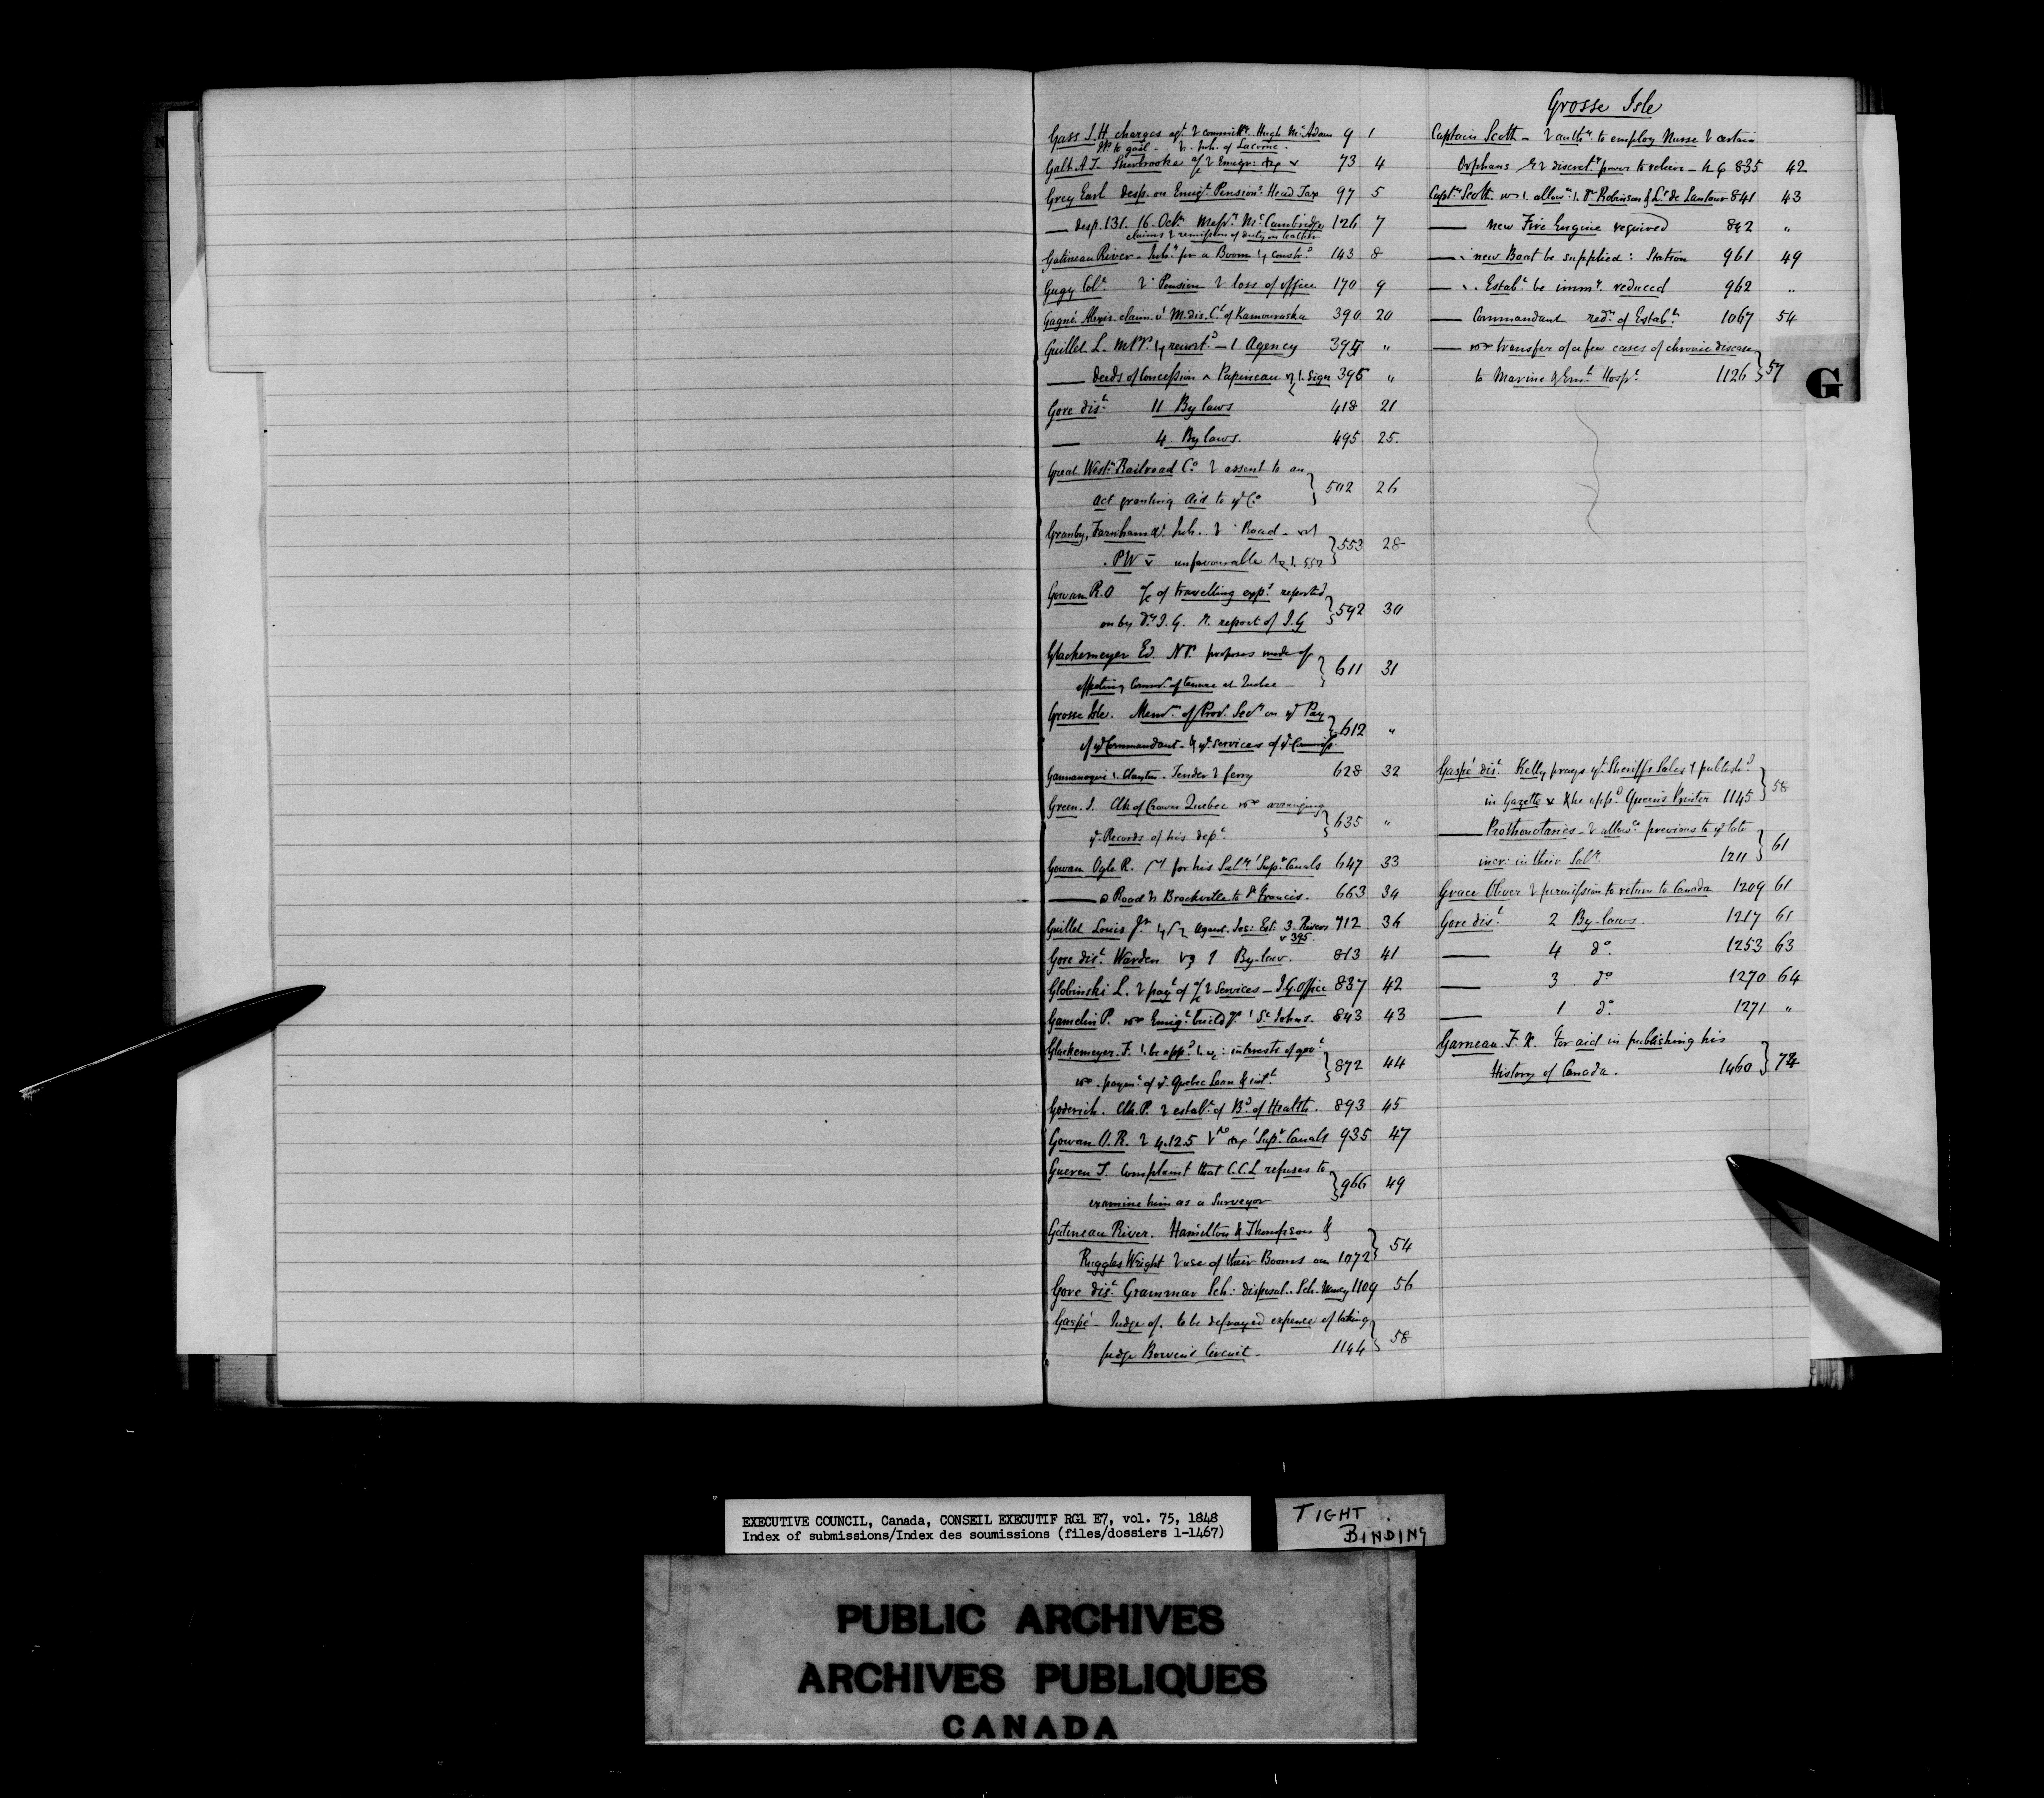 Gass J. H. charges agt & committt. Hugh McAdam 9 1
JP. to gaol - Inh. of Lacorne.
Galt A.T. Sherbrooke a/c Emigr: 73 4
Grey Earl desp. on Emigt Pensions. Head Tax 97 5
— desp. 131. 16. Octr. Messrs. McCambridge 126 7
claims & remission of duty on
Gatineau River - Inhts for a Boom constrd 143 8
Gugy Colt Pension & loss of office 170 9
Gagné Alexis. claim Mdis. Ct of Kamouraska 390 20
Guillet L. MPP. Agency 395 "
— deeds of Concession Papineau sign 395 "
Gore dist. 11 By laws 418 21
— 4 By laws. 495 25.
Great Westn Railroad Co. assent to an
act granting aid to Co. } 502 26
Granby, Farnham Inh. Road -
PW unfavourable 552 } 553 28
Gowan R.O a/c of travelling exps reported
on by Dy I.G. report of I.G } 592 30
Glackemeyer Ed. NP. proposes mode of
effecting Comm. of tenure at Quebec — } 611 31
Grosse Isle. Memm of Prov. Secy on Pay
of Commandant - services of } 612 "
Gannanoqui Clayton. Tender ferry 628 32
Green. J. Clk of Crown Quebec arranging
Records of his dept. } 635 "
Gowan Ogle R. for his Saly Supt. Canals 647 33
— Road Brockville to St Francis. 663 34
Guillet Louis Jr Agent. Jes: Est: 3. Rivers 712 36
v 395.
Gore dist. Warden 1 By-law. 813 41
Globinski L. payt of a/c services — I.G. Office 837 42
Gamelin P. Emigt St Johns. 843 43
Glackemeyer. F. be appd interests of govt
paymt of Quebec Loan & int. } 872 44
Goderich. Clk. P. establt of Bd of Health. 893 45
Gowan O.R. 4.12.5 Supt. Canals 935 47
Gueren T. Complaint that C.C.L refuses to
examine him as a Surveyor } 966 49
Gatineau River. Hamilton & Thompson &
Ruggles Wright use of their Booms on 1072 } 54
Gore dist. Grammar Sch: disposal.. Sch. Money 1109 56
Gaspé - Judge of. to be defrayed expense of taking
Judge Bowen's Circuit. 1144 } 58
Grosse Isle
Captain Scott - authy. to employ Nurse & certain
Orphans discrety power to relieve - 835 42
Captn Scott allowce Dr Robinson & Lt de Lantour 841 43
— new Fire Engine required 842 "
— new Boat be supplied: Station 961 49
— Establt be immy. reduced 962 "
— Commandant redn of Establt 1067 54
— transfer of a few cases of chronic disease
to Marine & Emt Hospl 1126 } 57
G
Gaspé dist. Kelly prays yt Sheriffs Sales publishd
in Gazette & he appd Queen's Printer 1145 } 58
— Prothonotaries - allowce previous to late
incr: in their Saly. 1211 } 61
Grace Oliver permission to return to Canada 1209 61
Gore dist. 2 By-laws. 1217 61
— 4 do. 1253 63
— 3 do 1270 64
— 1 do. 1271 "
Garneau. F. X. For aid in publishing his
History of Canada. 1460 } 74
EXECUTIVE COUNCIL, Canada, CONSEIL EXECUTIF RG1 E7, vol. 75, 1848
Index of submissions/Index des soumissions (files/dossiers 1-1467)
TIGHT
BINDING
PUBLIC ARCHIVES
ARCHIVES PUBLIQUES
CANADA